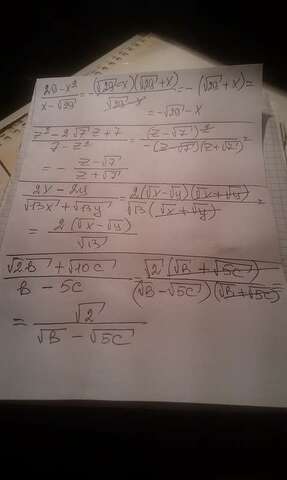 (20 - x²)/(x - √20) = ((√20 - x)(√20 + x))/(√20 - x) = -(√20 + x) =
= -√20 - x
(z² - 2√7 z + 7)/(7 - z²) = (z - √7)²/(-(z - √7)(z + √7)) =
= - (z - √7)/(z + √7)
(2x - 2y)/(√13x + √13y) = (2(√x - √y)(√x + √y))/(√13(√x + √y)) =
= (2(√x - √y))/√13
(√2B + √10C)/(B - 5C) = (√2(√B + √5C))/((√B - √5C)(√B + √5C)) =
= √2/(√B - √5C)